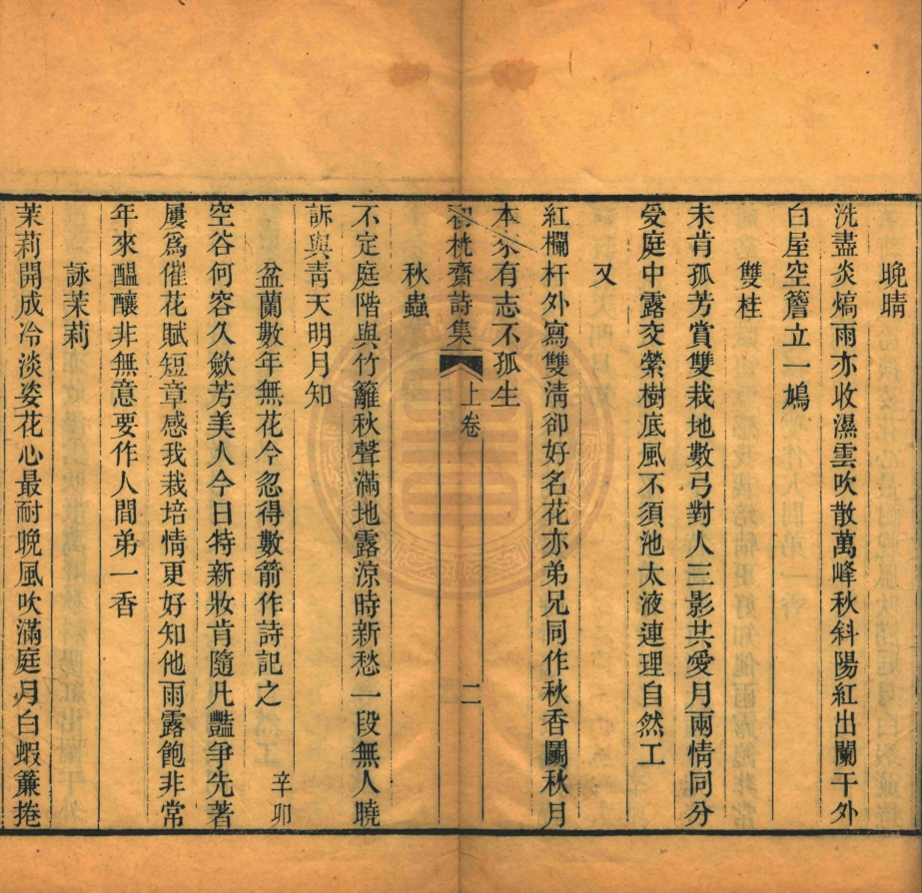 晚晴
洗盡炎熇雨亦收濕雲吹散萬峰秋斜陽紅出闌干外
白屋空簷立一鳩
雙桂
未肯孤芳賞雙栽地數弓對人三影共愛月兩情同分
愛庭中露交縈樹底風不須池太液連理自然工
又
紅欄杆外寫雙淸卻好名花亦弟兄同作秋香鬭秋月
本來有志不孤生
初桄齋詩集 上卷 二
秋蟲
不定庭階與竹籬秋聲滿地露涼時新愁一段無人曉
訴與靑天明月知
盆蘭數年無花今忽得數箭作詩記之 辛卯
空谷何容久歛芳美人今日特新妝肯隨凡豔爭先著
屢爲催花賦短章感我栽培情更好知他雨露飽非常
年來醖釀非無意要作人間弟一香
詠茉莉
茉莉開成冷淡姿花心最耐晚風吹滿庭月白蝦簾捲